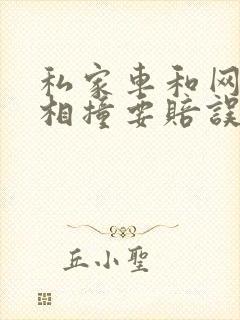 私家車和网
相撞要賠誤
丘小聖